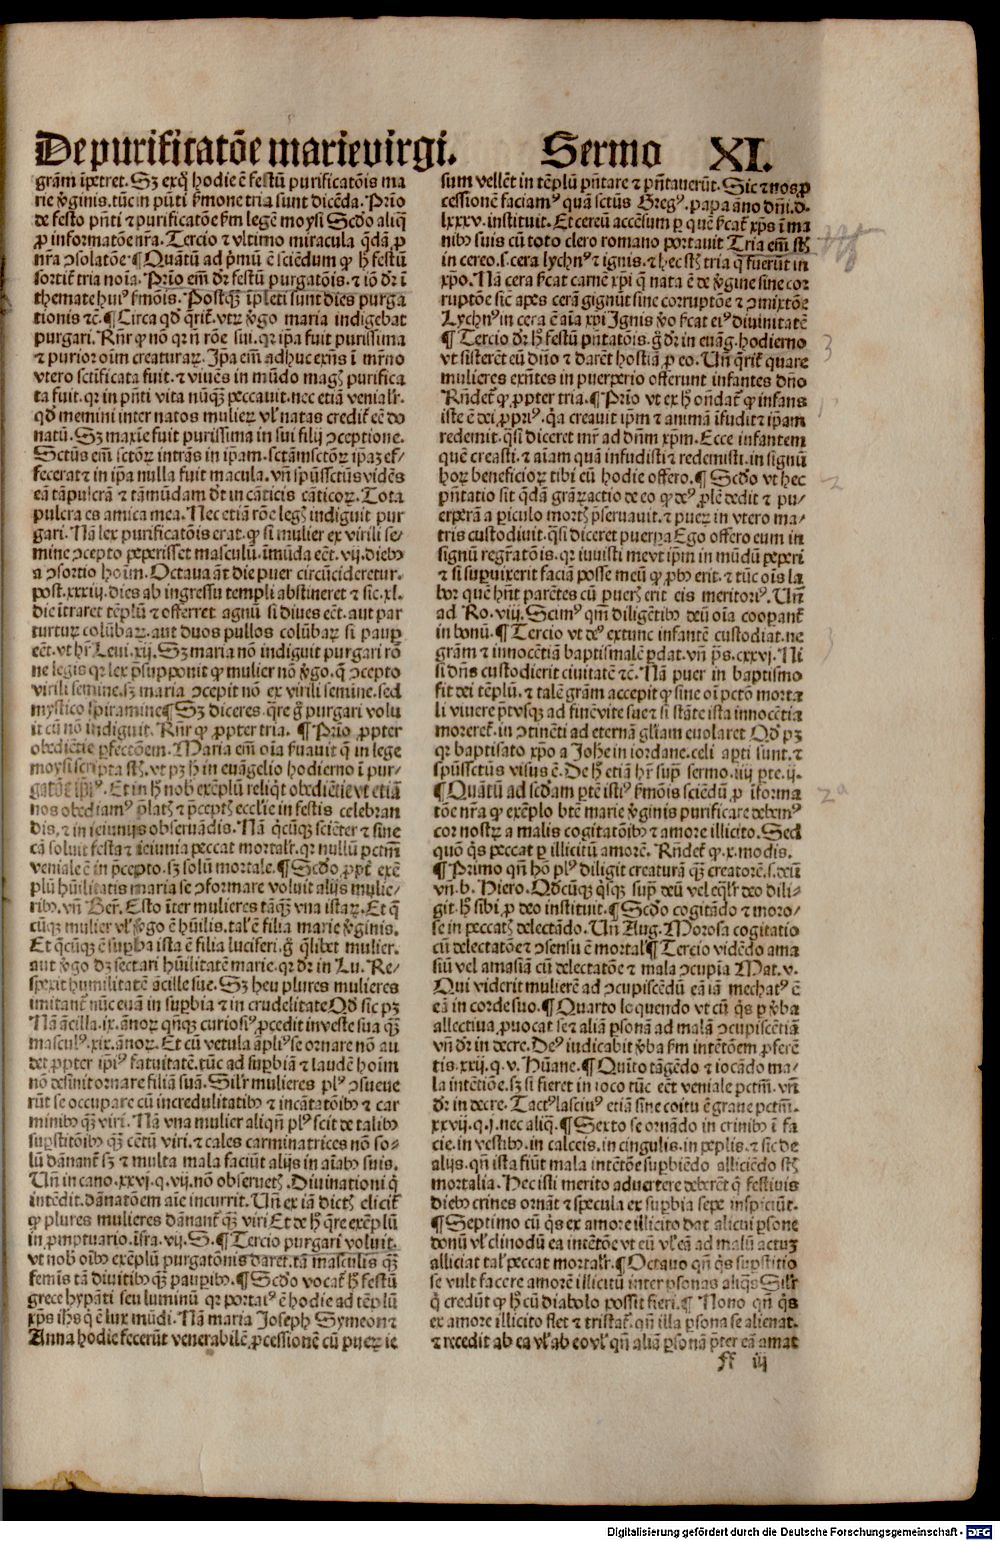 De purificatōe marie virgi. Sermo XI.
grām īpetret. Sz exq̄ hodie ē festū purificatōis ma
rie v̄ginis. tūc in pn̄ti ẜmone tria sunt dicēda. Prīo
de festo pn̄ti ⁊ purificatōe ẜm legē moysi Scd̄o aliq̄
ꝓ informatōe nr̄a. Tercio ⁊ vltimo miracula q̄dā ꝓ
nr̄a ꝯsolatōe ¶ Quātū ad p̄mū ē sciēdum ꝙ h̄ festū
sortit᷑ tria noīa. Prīo em̄ dr̄ festū purgatōis. ⁊ iō dr̄ ī
themate huiꝰ ẜmōis. Postqꝫ īpleti sunt dies purga
tionis ⁊c̄. ¶ Circa qd̄ q̄rit᷑. vtꝝ v̄go maria indigebat
purgari. Rn̄r ꝙ nō qꝛ n̄ rōe sui. qꝛ ip̄a fuit purissima
⁊ purior oīm creaturaꝝ. Ip̄a em̄ adhuc exn̄s ī mr̄no
vtero sctīficata fuit. ⁊ viuēs in mūdo magꝭ purifica
ta fuit. qꝛ in pn̄ti vita nūqꝫ peccauit. nec etiā venialr̄.
qd̄ memini inter natos mulieꝝ vl̄ natas credit᷑ eē do
natū. Sz maxīe fuit purissima in sui filij ꝯceptione.
Sctūs em̄ sctōꝝ intrās in ip̄am. sctāmsctōꝝ ip̄aꝫ ef⸗
fecerat ⁊ in ip̄a nulla fuit macula. vn̄ sp̄ussctūs vidēs
eā tāpulcrā ⁊ tāmūdam dt̄ in cāticis cāticoꝝ. Tota
pulcra es amica mea. Nec etiā rōe legꝭ indiguit pur
gari. Nā lex purificatōis erat. ꝙ si mulier ex virili se⸗
mine ꝯcepto peperisset masculū. īmūda eēt. vij. diebꝰ
a ꝯsortio hoīm. Octaua āt die puer circūcideretur.
post. xxxiij. dies ab ingressu templi abstineret ⁊ sic. xl.
die ītraret tēplū ⁊ offerret agnū si diues eēt. aut par
turturꝝ colūbaꝝ. aut duos pullos colūbaꝝ si pauꝑ
eēt. vt hr̄ Leui. xij. Sz maria nō indiguit purgari rō
ne legis qꝛ lex p̄supponit ꝙ mulier nō v̄go. q̄ ꝯcepto
virili semine. sꝫ maria ꝯcepit nō ex virili semine. sed
mystico spiramine ¶ Sz diceres. q̄re g̊ purgari volu
it cū nō indiguit. Rn̄r ꝙ ꝓpter tria. ¶ Prīo ꝓpter
obediētie ꝑfectōem. Maria em̄ oīa ẜuauit q̄ in lege
moysi scripta st̄. vt pꝫ h̄ in euāgelio hodierno ī pur⸗
gatōe ip̄iꝰ. Et in h̄ nob̄ exēplū reliqt̄ obediētie vt etiā
nos obediamꝰ p̄latꝭ ⁊ p̄ceptꝭ ecclīe in festis celebran
dis. ⁊ in ieiunijs obseruādis. Nā q̄cūqꝫ sciēter ⁊ sine
cā soluit festa ⁊ ieiunia peccat mortalr̄. qꝛ nullū pctm̄
veniale ē in p̄cepto. sꝫ solū mortale. ¶ Scd̄o ꝓpt᷑ exē
plū hūilitatis maria se ꝯformare voluit alijs mulie⸗
ribꝰ. vn̄ Ber̄. Esto īter mulieres tāqꝫ vna istaꝝ. Et q̄
cūqꝫ mulier vl̄ v̄go ē hūilis. tal̄ ē filia marie v̄ginis.
Et q̄cūqꝫ ē suꝑba ista ē filia luciferi. g̊ q̄libet mulier.
aut v̄go dꝫ sectari hūilitatē marie. qꝛ dr̄ in Lu. Re⸗
spexit humilitatē ācille sue. Sz heu plures mulieres
imitant᷑ nūc euā in suꝑbia ⁊ in crudelitate Qd̄ sic pꝫ
Nā ācilla. ix. ānoꝝ qn̄qꝫ curiosiꝰ ꝓcedit in veste sua qꝫ
masculꝰ. xix. ānoꝝ. Et cū vetula āpliꝰ se ornare nō au
det ꝓpter ip̄iꝰ fatuitatē. tūc ad suꝑbiā ⁊ laudē hoīm
nō desinit ornare filiā suā. Silr̄ mulieres plꝰ ꝯsueue
rūt se occupare cū incredulitatibꝰ ⁊ incātatōibꝰ ⁊ car
minibꝰ qꝫ viri. Nā vna mulier aliqn̄ plꝰ scit de talibꝰ
suꝑstitōibꝰ qꝫ cētū viri. ⁊ tales carminatrices nō so⸗
lū dānant᷑ sꝫ ⁊ multa mala faciūt alijs in aīabꝰ suis.
Un̄ in cano. xxvj. q. vij. nō obseruetꝭ. Diuinationi q̄
intēdit. dānatōem aīe incurrit. Un̄ ex iā dictꝭ elicit᷑
ꝙ plures mulieres dānant᷑ qꝫ viri Et de h̄ q̄re exēplū
in ꝓmptuario. īfra. vij. S. ¶ Tercio purgari voluit.
vt nob̄ oībꝰ exēplū purgatōnis daret. tā masculis qꝫ
femīs tā diuitibꝰ qꝫ pauꝑibꝰ. ¶ Scd̄o vocat᷑ h̄ festū
grece hypāti seu luminū qꝛ portatꝰ ē hodie ad tēplū
xp̄s ih̄s q̄ ē lux mūdi. Nā maria Joseph Symeon ⁊
Anna hodie fecerūt venerabilē ꝓcessionē cū pueꝝ ie
sum vellēt in tēplū pn̄tare ⁊ pn̄tauerūt. Sic ⁊ nos ꝓ
cessionē faciamꝰ quā sctūs Gregꝰ. papa āno dn̄i. d.
lxxxv. instituit. Et cereū accēsum ꝑ quē ẜcat᷑ xp̄s ī ma
nibꝰ suis cū toto clero romano portauit Tria em̄ st̄
in cereo. s. cera lychnꝰ ⁊ ignis. ⁊ hec st̄ tria q̄ fuerūt in
xp̄o. Nā cera ẜcat carnē xp̄i q̄ nata ē de v̄gine sine cor
ruptōe sic̄ apes cerā gignūt sine corruptōe ⁊ ꝯmixtōe
Lychnꝰ in cera ē aīa xp̄i Ignis v̊o ẜcat eiꝰ diuinitatē
¶ Tercio dr̄ h̄ festū pn̄tatōis. g̊ dr̄ in euāg. hodierno
vt sisterēt eū dn̄o ⁊ darēt hostiā ꝓ eo. Un̄ q̄rit᷑ quare
mulieres exn̄tes in puerperio offerunt infantes dn̄o
Rn̄det᷑ ꝙ ꝓpter tria. ¶ Prīo vt ex h̄ on̄dat᷑ ꝙ infans
iste ē dei ꝓpriꝰ. q̄a creauit ip̄m ⁊ animā īfudit ⁊ ip̄am
redemit. q̄si diceret mr̄ ad dn̄m xp̄m. Ecce infantem
quē creasti. ⁊ aīam quā infudisti ⁊ redemisti. in signū
hoꝝ beneficioꝝ tibi eū hodie offero. ¶ Scd̄o vt hec
pn̄tatio sit q̄dā grāꝝactio de eo ꝙ deꝰ ꝓlē dedit ⁊ pu⸗
erperā a ꝑiculo mortꝭ p̄seruauit. ⁊ pueꝝ in vtero ma⸗
tris custodiuit. q̄si diceret puerꝑa Ego offero eum in
signū regr̄atōis. qꝛ iuuisti me vt ip̄m in mūdū peperi
⁊ si suꝑuixerit faciā posse meū ꝙ ꝓbꝰ erit. ⁊ tūc oīs la
bor quē hn̄t parētes cū puerꝭ erit eis meritoriꝰ. Un̄
ad Ro. viij. Scimꝰ qm̄ diligētibꝰ deū oīa coopant᷑
in bonū. ¶ Tercio vt deꝰ extunc infantē custodiat. ne
grām ⁊ innocētiā baptismalē ꝑdat. vn̄ p̄s. cxxvj. Ni
si dn̄s custodierit ciuitatē ⁊c̄. Nā puer in baptismo
fit dei tēplū. ⁊ talē grām accepit ꝙ sine oī pctō morta
li viuere p̄tvsqꝫ ad finēvite sue ⁊ si stāte ista innocētia
moreret᷑. in ꝯtinēti ad eternā glīam euolaret Qd̄ pꝫ
qꝛ baptisato xp̄o a Johe in iordane. celi aꝑti sunt. ⁊
sp̄ussctūs visus ē. De h̄ etiā hr̄ suꝑ sermo. iiij ꝑte. ij.
¶ Quātū ad scd̄am ꝑtē istiꝰ ẜmōis sciēdū ꝓ īforma
tōe nr̄a ꝙ exēplo btē marie v̄ginis purificare debemꝰ
cor nostꝝ a malis cogitatōibꝰ ⁊ amore illicito. Sed
quō q̄s peccat ꝑ illicitū amorē. Rn̄det᷑ ꝙ. x. modis.
¶ Primo qn̄ hō plꝰ diligit creaturā qꝫ creatorē. s. deū
vn̄. b. Hiero. Qd̄cūqꝫ q̄sqꝫ suꝑ deū vel eq̄lr̄ deo dili⸗
git. h̄ sibi ꝓ deo instituit. ¶ Scd̄o cogitādo ⁊ moro⸗
se in peccatꝭ delectādo. Un̄ Aug. Morosa cogitatio
cū delectatōe ⁊ ꝯsensu ē mortal̄ ¶ Tercio vidēdo ama
siū vel amasiā cū delectatōe ⁊ mala ꝯcupīa Mat. v.
Qui viderit mulierē ad ꝯcupiscēdū eā iā mechatꝰ ē
eā in corde suo. ¶ Quarto loquendo vt cū q̄s ꝑ v̄ba
allectiua ꝓuocat se ⁊ aliā ꝑsonā ad malā ꝯcupiscētiā
vn̄ dr̄ in decre. Deꝰ iudicabit v̄ba ẜm intētōem ꝓferē
tis. xxij. q. v. Hūane. ¶ Quīto tāgēdo ⁊ iocādo ma⸗
la intētiōe. sꝫ si fieret in ioco tūc eēt veniale pctm̄. vn̄
dr̄ in decre. Tactꝰ lasciuꝰ etiā sine coitu ē graue pctm̄.
xxvij. q. j. nec aliq̄. ¶ Sexto se ornādo in crinibꝰ ī fa
cie. in vestibꝰ. in calceis. in cingulis. in peplis. ⁊ sic de
alijs. qn̄ ista fiūt mala intētōe suꝑbiēdo alliciēdo st̄
mortalia. Hec isti merito aduertere deberēt q̄ festiuis
diebꝰ crines ornāt ⁊ specula ex suꝑbia sepe inspiciūt.
¶ Septimo cū q̄s ex amore illicito dat alicui ꝑsone
donū vl̄ clinodū ea intētōe vt eū vl̄ eā ad malū actuꝫ
alliciat tal̄ peccat mortalr̄. ¶ Octauo qn̄ q̄s suꝑstitio
se vult facere amorē illicitū inter ꝑsonas aliq̄s Silr̄
q̄ credūt ꝙ h̄ cū diabolo possit fieri. ¶ Nono qn̄ q̄s
ex amore illicito flet ⁊ tristat᷑. qn̄ illa ꝑsona se alienat.
⁊ recedit ab ea vl̄ ab eo vl̄ qn̄ aliā ꝑsonā p̄ter eā amat
ff iij
Digitalisierung gefördert durch die Deutsche Forschungsgemeinschaft - DFG